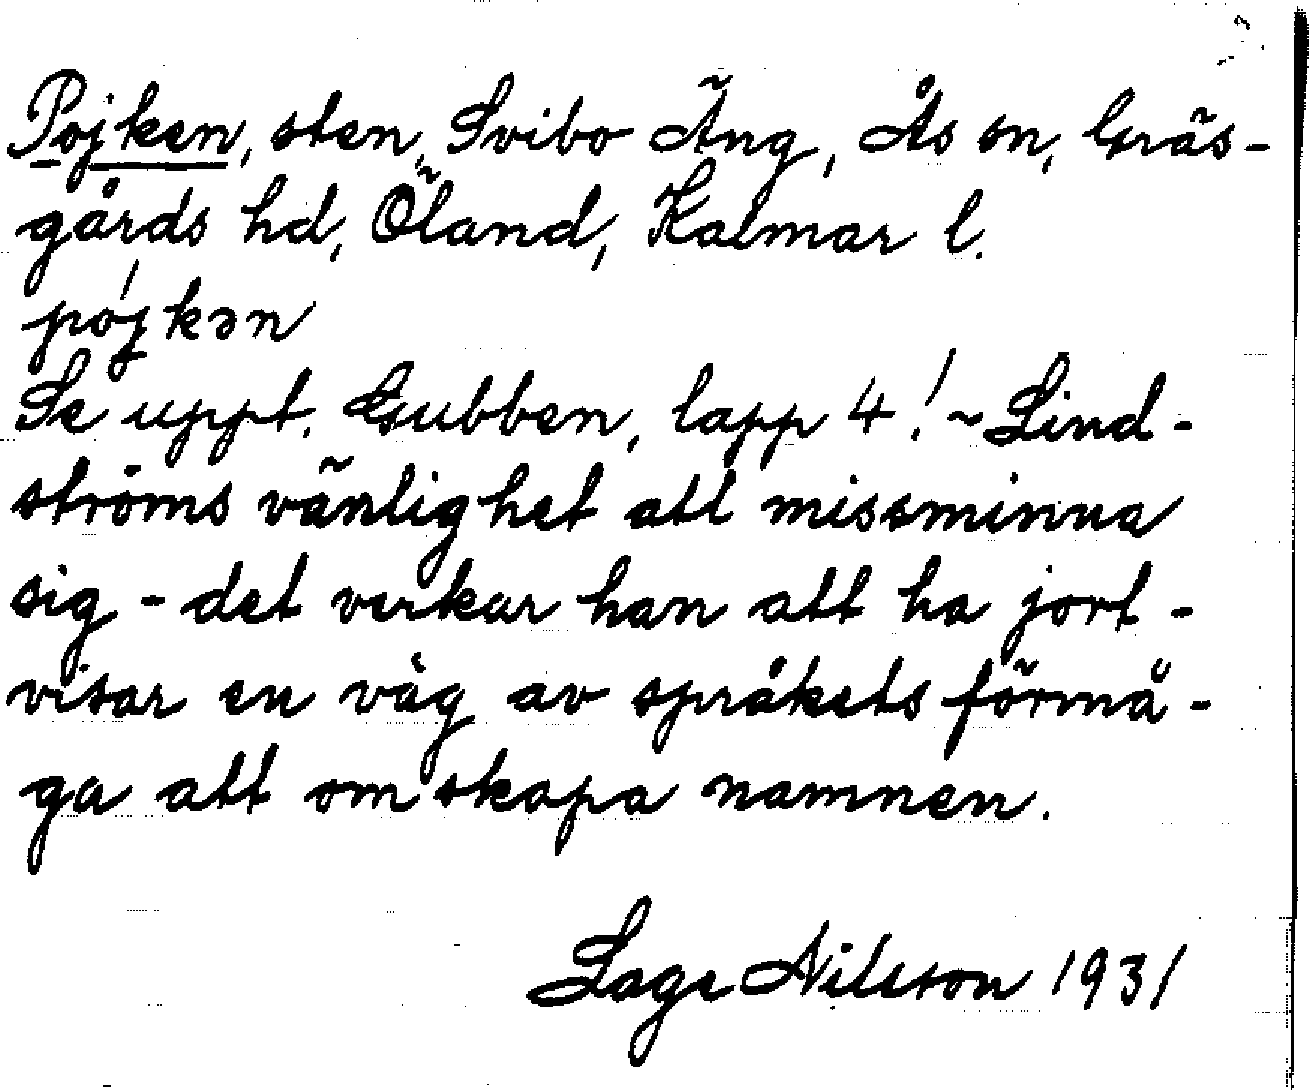 Pojken, sten, Svibo Äng, Ås sn, Gräs-
gårds hd, Öland, Kalmar l.
pójkən
Se uppt. Gubben, lapp 4! ~ Lind-
ströms vänlighet att missminna
sig - det verkar han att ha jort -
visar en väg av språkets förmå-
ga att omskapa namnen.
Sage Nilsson 1931